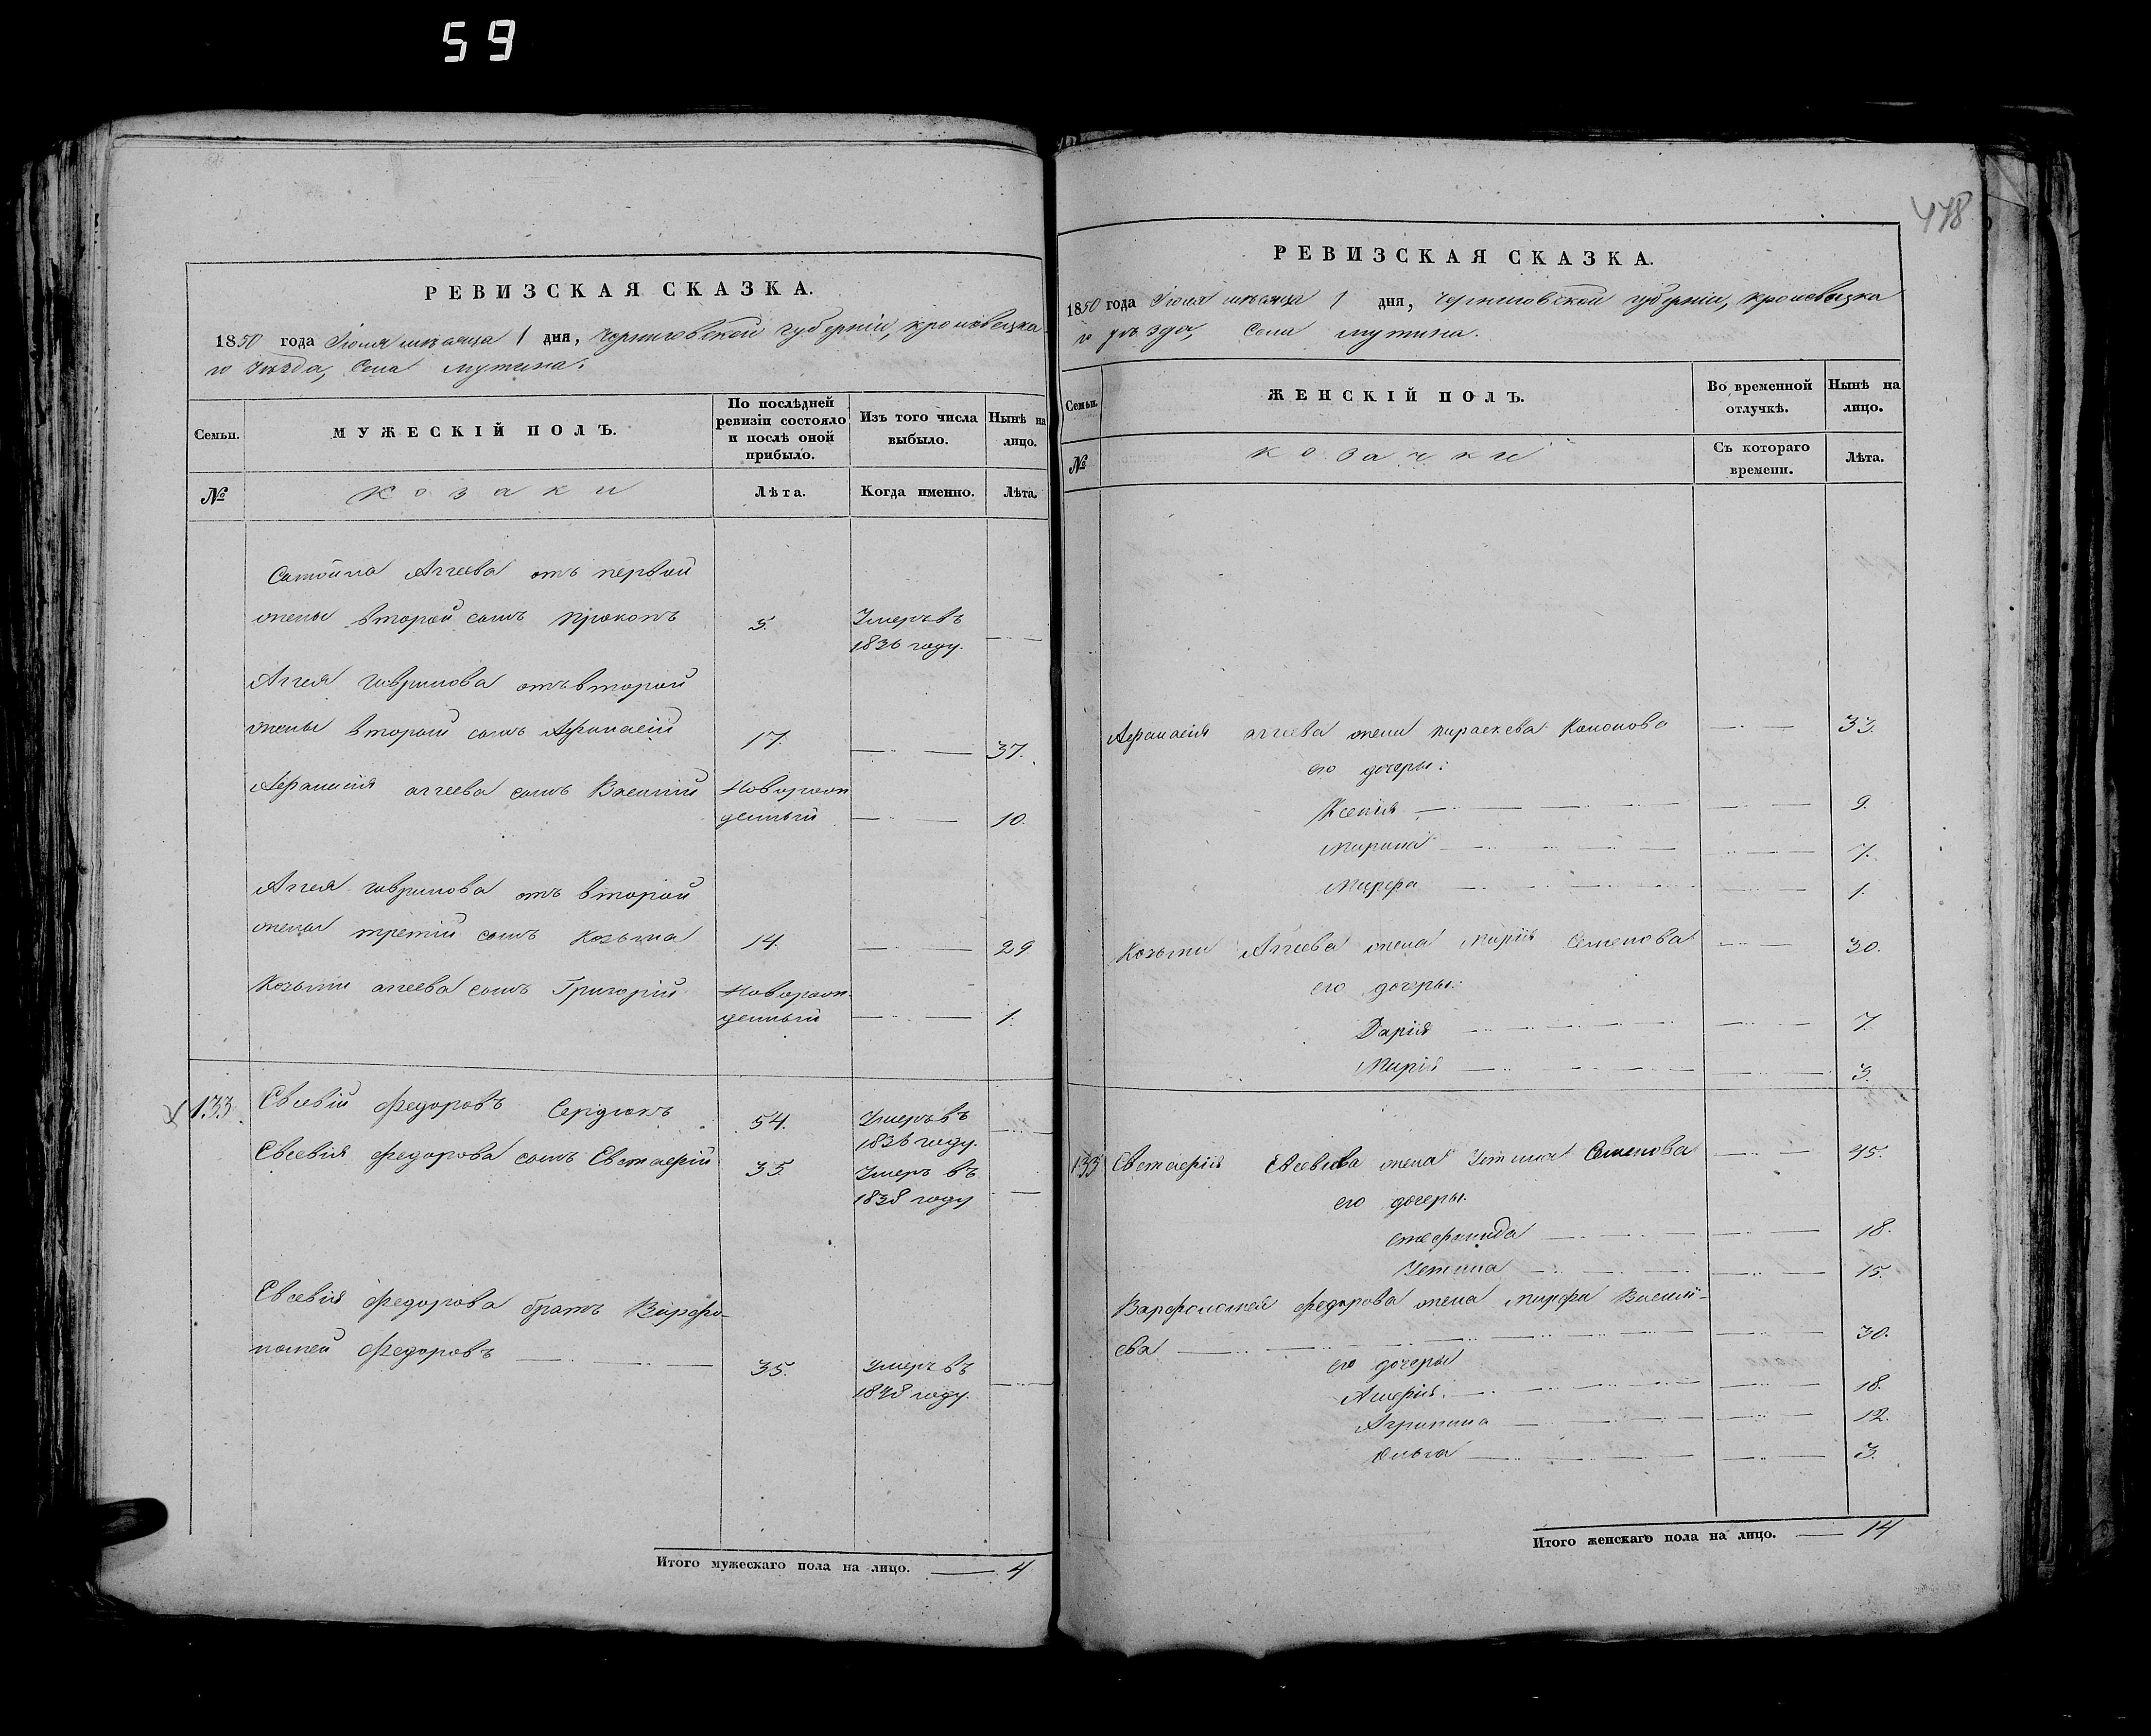 59
РЕВИЗСКАЯ СКАЗКА.
1850 года Іюля мѣсяца 1 дня, Черниговской губерніи, кролевецка
го уѣзда, Села мутина.
Семьи.
МУЖЕСКІЙ ПОЛЪ.
По послѣдней ревизіи состояло и послѣ оной прибыло.
Изъ того числа выбыло.
Нынѣ на лицо.
№
козаки
Лѣта.
Когда именно.
Лѣта.
Аггеева отъ первой
жены второй сынъ Прокопъ 5. Умеръ въ
1836 году.
Аггея Гаврилова отъ второй
жены второй сынъ Афанасій 17. 37.
Афанасія аггеева сынъ Василій Новорож
денный 10.
Аггея Гаврилова отъ второй
жены третій сынъ Козьма 14. 29
Козьми аггеева сынъ Григорій Новорож-
денный 1.
133. Евсевій Федоровъ Сердюкъ 54. Умеръ въ
1836 году.
Евсевія Федорова сынъ Евстафій 35. Умеръ въ
1838 году
Евсевія Федорова братъ Варфо-
ломей Федоровъ 35. Умеръ въ
1848 году.
Итого мужескаго пола на лицо. 4
478
РЕВИЗСКАЯ СКАЗКА.
1850 года Іюля мѣсяца 1 дня, Черниговской губерніи, кролевецка
го уѣзда, Села мутина.
Семьи.
ЖЕНСКІЙ ПОЛЪ.
Во временной отлучкѣ.
Нынѣ на лицо.
№
козачки
Съ котораго времени.
Лѣта.
Афанасія аггеева жена параскева Кононова 33.
его дочеры:
Ксенія 9.
Марина 7.
Марфа 1.
Козьми Аггеева жена Марія Семенова 30.
его дочеры:
Дарія 7.
Марія 3.
133 Евстафія Евсевіева жена Устина Семенова 45.
его дочеры.
стефанида 18.
Устина 15.
Варфоломея Федорова жена марфа Василі-
ева 30.
его дочеры
18.
Агрипина 12.
Ольга 3.
Итого женскаго пола на лицо. 14